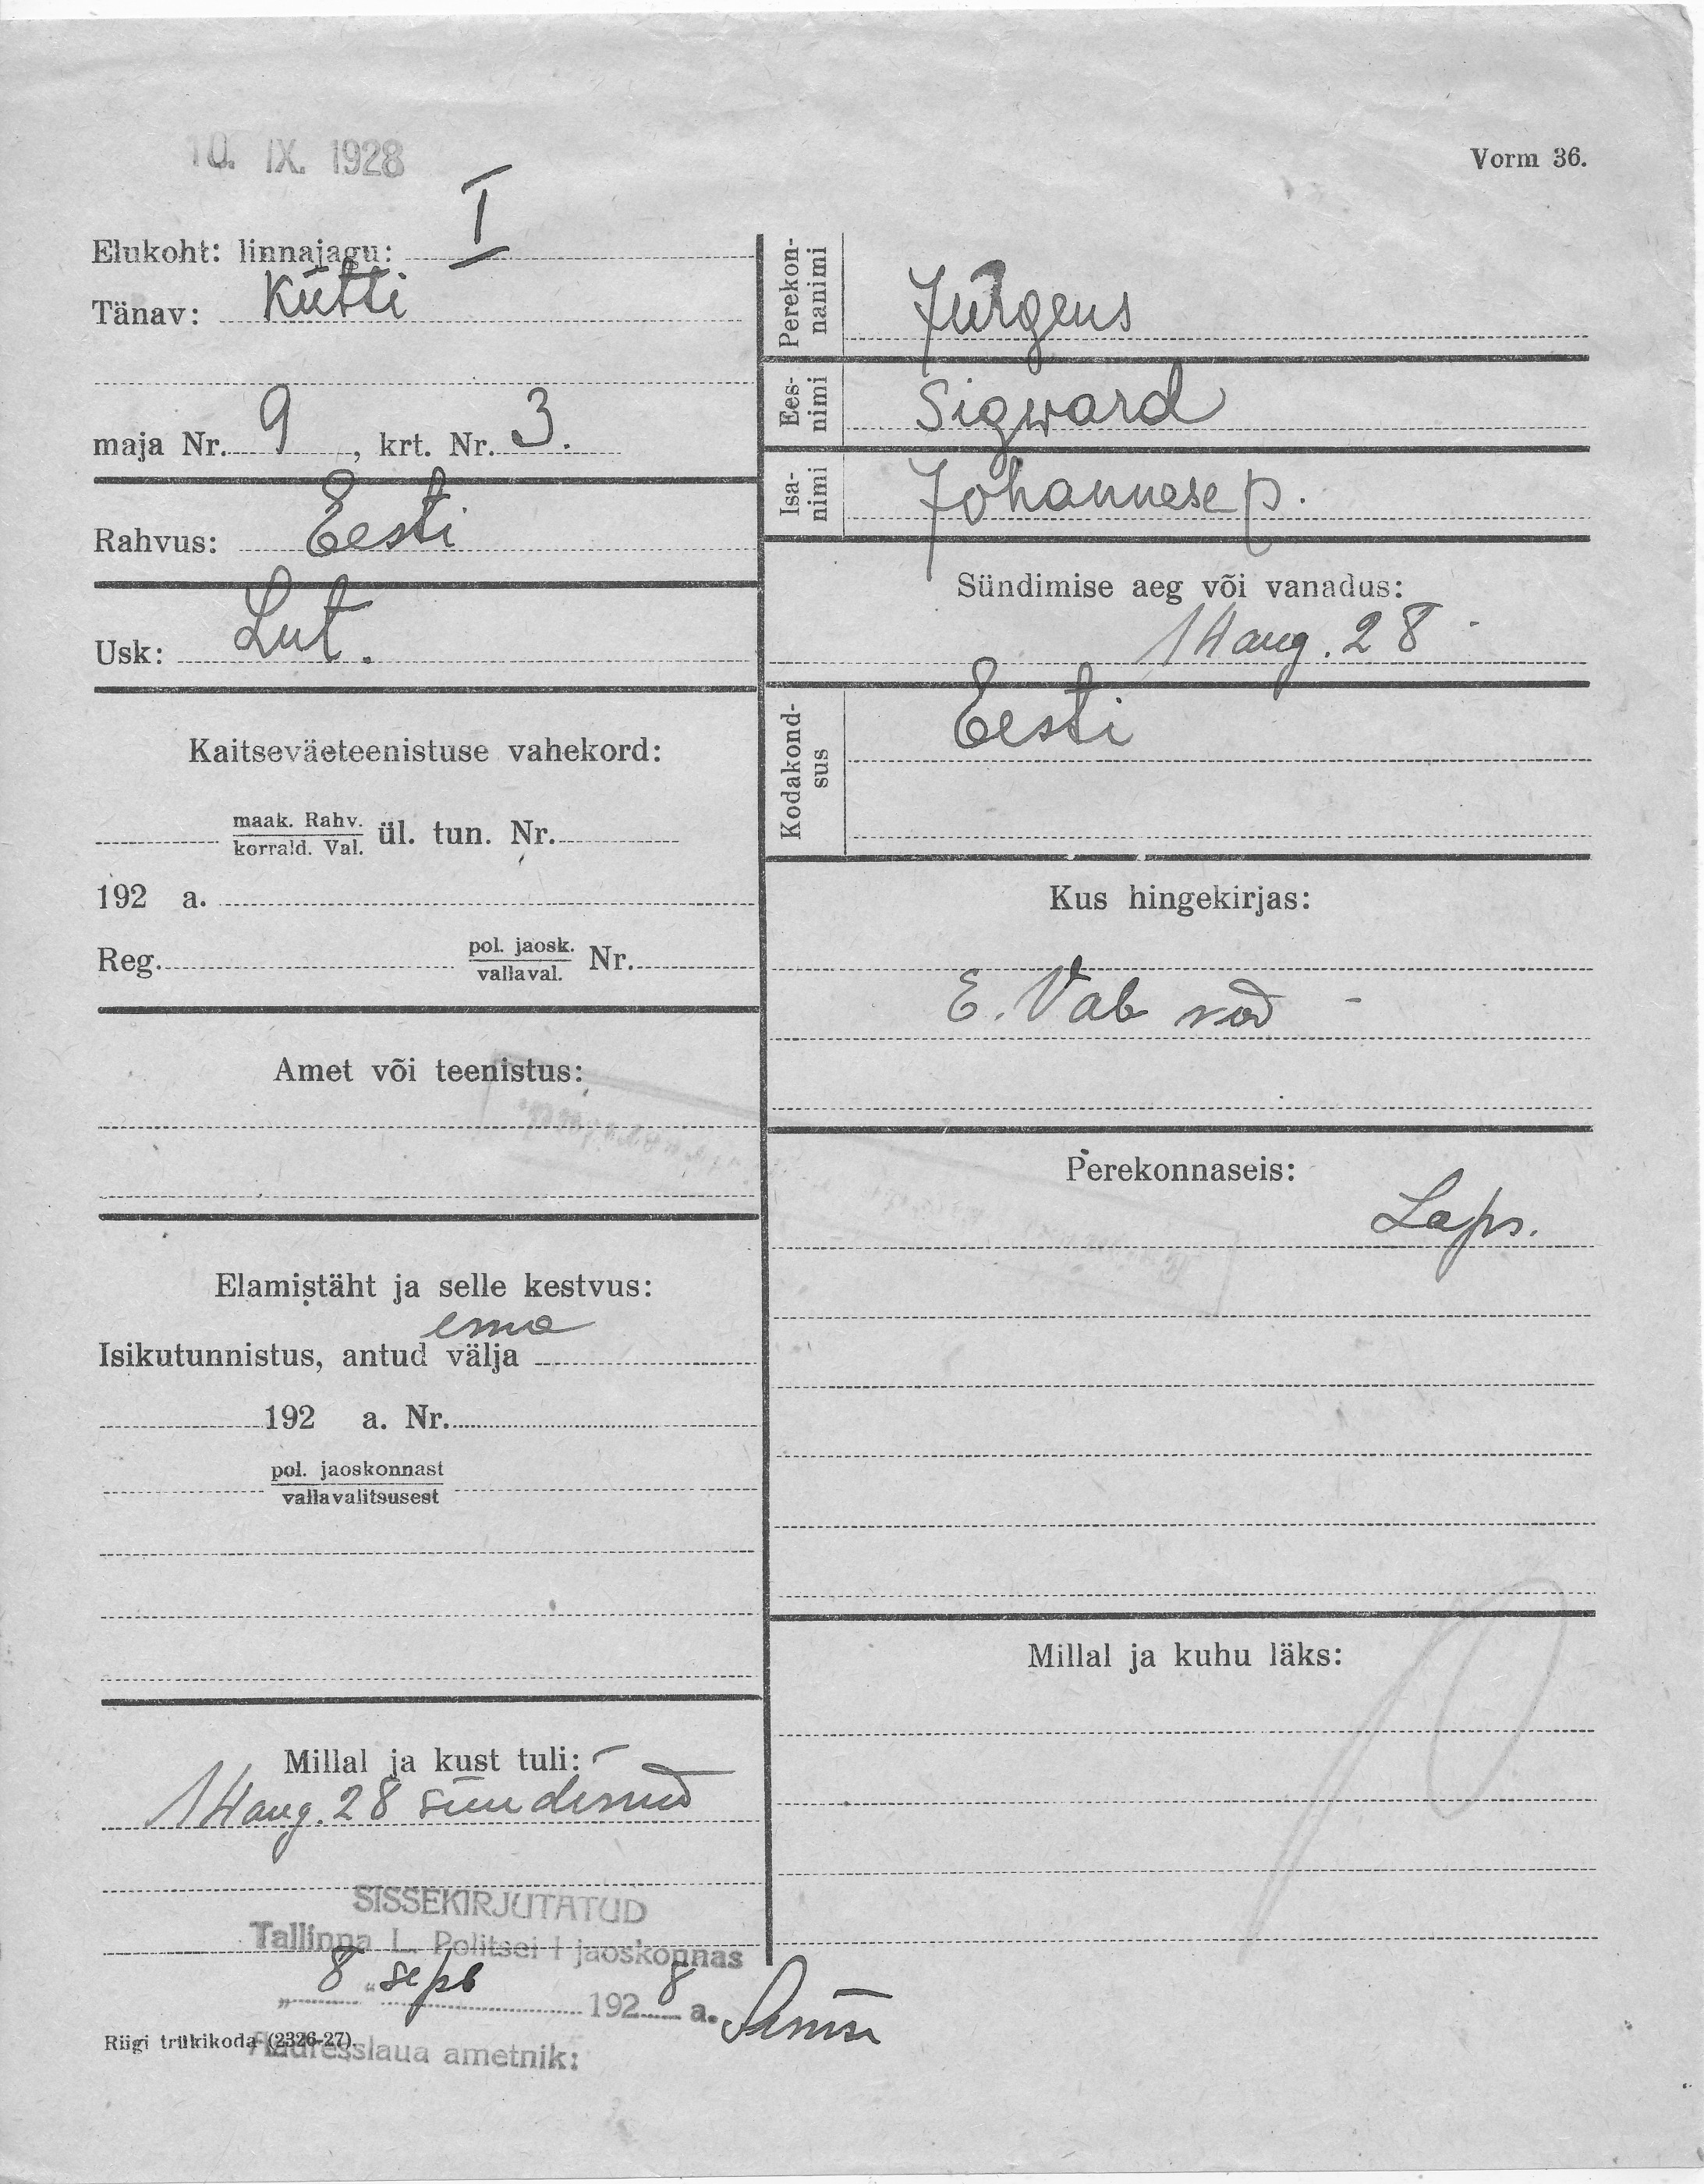 10. IX. 1928
Vorm 36.
Elukoht: linnajagu: I
Tänav: Kütti
maja Nr. 9, krt. Nr. 3.
Rahvus: Eesti
Usk: Lut.
Kaitseväeteenistuse vahekord:
maak. Rahv.
korrald. Val. ül. tun. Nr.
192 a.
Reg. pol. jaosk.
vallaval. Nr.
Amet või teenistus:
Elamistäht ja selle kestvus:
ema
Isikutunnistus, antud välja
192 a. Nr.
pol. jaoskonnast
vallavalitsusest
Millal ja kust tuli:
14 aug. 28 sündinud
SISSEKIRJUTATUD
Tallinna L. Politsei I jaoskonnas
„8" sept 1928 a.
Riigi trükikoda (2326-27).
Aadresslaua ametnik:
Perekon-
nanimi
Jürgens
Ees-
nimi
Sigward
Isa-
nimi
Johannese p.
Sündimise aeg või vanadus:
14 aug. 28
Kodakond-
sus
Eesti
Kus hingekirjas:
E. Vab
Perekonnaseis:
Laps.
Millal ja kuhu läks: